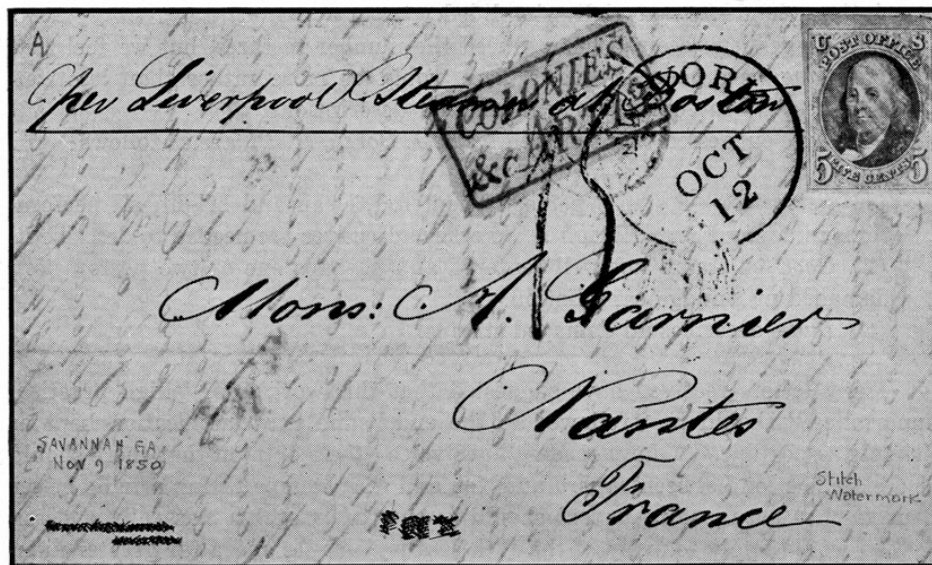 A
per Liverpool Steamer at Boston
COLONIES
&c ART.
YORK
OCT
12
U S
POST OFFICE
FIVE CENTS
5 5
15
Mons: A. Garnier
Nantes
France
SAVANNAH GA.
NOV 9 1850
Stitch
Watermark